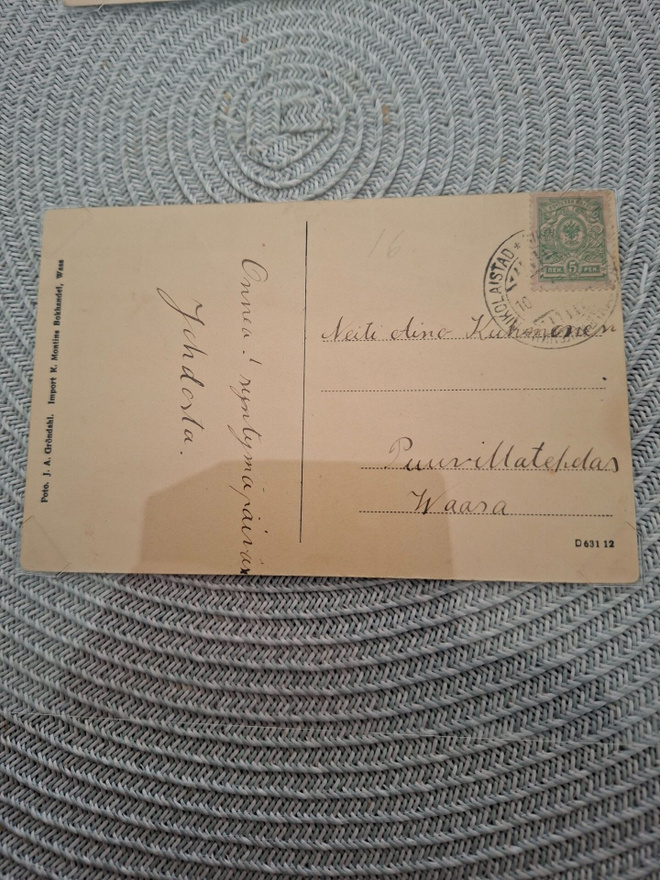 Poto. J. A. Gröndahl. Import K. Montins Bokhandel, Wasa
Onnea! syntymäpäivän
Johdosta.
16
NIKOLAISTAD
10
5
Neiti Aino Kuhmonen
Puuvillatehdas
Waasa
D 631 12